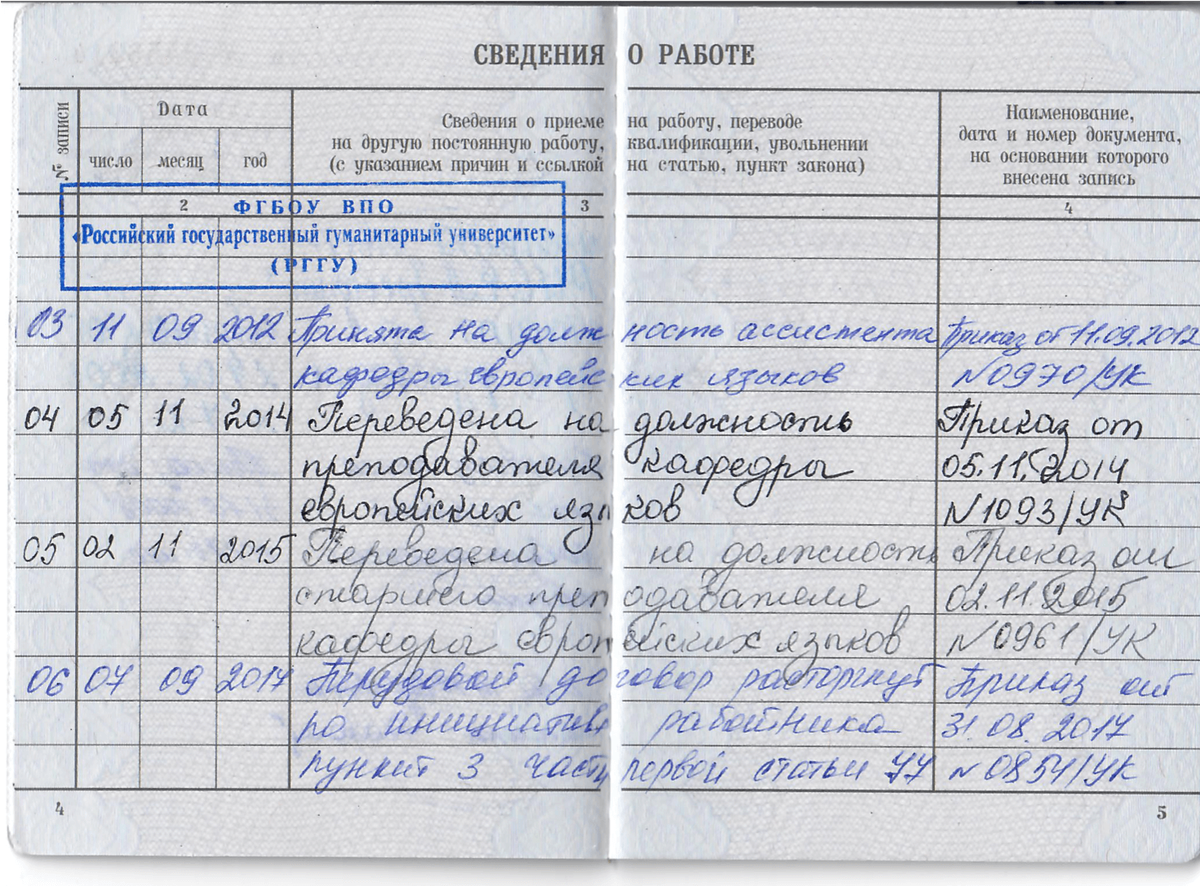 СВЕДЕНИЯ О РАБОТЕ
№ записи
Дата
число месяц год
Сведения о приеме на работу, переводе
на другую постоянную работу, квалификации, увольнении
(с указанием причин и ссылкой на статью, пункт закона)
Наименование,
дата и номер документа,
на основании которого
внесена запись
2 3 4
ФГБОУ ВПО
«Российский государственный гуманитарный университет»
(РГГУ)
03 11 09 2012 Принята на должность ассистента Приказ от 11.09.2012
кафедры европейских языков №0970/УК
04 05 11 2014 Переведена на должность Приказ от
преподавателя кафедры 05.11.2014
европейских языков №1093/УК
05 02 11 2015 Переведена на должность Приказ от
старшего преподавателя 02.11.2015
кафедры европейских языков №0961/УК
06 07 09 2017 договор расторгнут Приказ от
по инициативе работника 31.08.2017
пункт 3 части первой статьи 77 №0854/УК
4 5